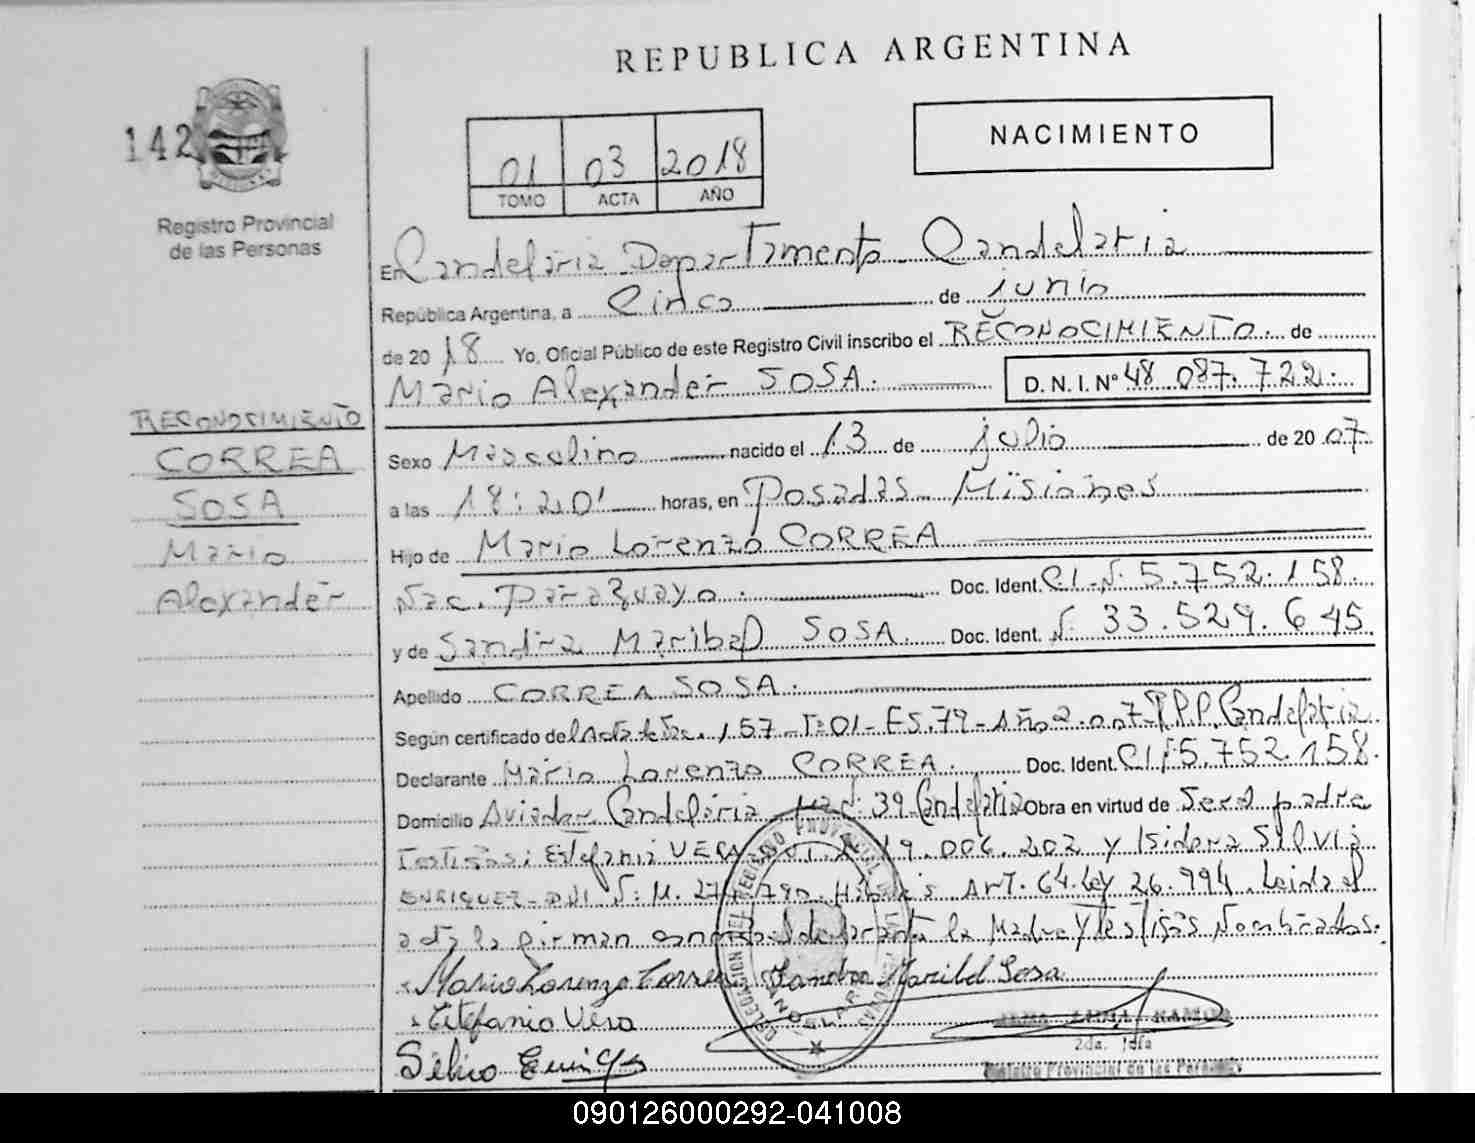 REPUBLICA ARGENTINA
142
NACIMIENTO
01 03 2018
TOMO ACTA AÑO
Registro Provincial
de las Personas
En Candelaria Departamento Candelaria
República Argentina, a Cinco de junio
de 2018 Yo, Oficial Público de este Registro Civil inscribo el RECONOCIMIENTO de
Mario Alexander SOSA. D. N. I. Nº 48 087.722.
RECONOCIMIENTO
CORREA
SOSA
Mario
Alexander
Sexo Masculino nacido el 13 de julio de 20 07
a las 18:20' horas, en Posadas Misiones
Hijo de Mario Lorenzo CORREA
Nac. Paraguayo. Doc. Ident. CI.N: 5.752.158.
y de Sandra Maribel SOSA. Doc. Ident. N: 33.529.645
Apellido CORREA SOSA.
Según certificado del Acta de Nac. 157-T:01-FS.79-Año 2.007 R.P.P. Candelaria
Declarante Mario Lorenzo CORREA. Doc. Ident. CI 5.752.158.
Domicilio Aviador Candelaria 39 Candelaria Obra en virtud de Ser el padre
Testigos: Estefania VERA 19.006.202 y Isidora Silvia
ENRIQUEZ-DNI N: M. Art. 64. Ley 26.994. Leida el
acta la firman el declarante la Madre y testigos Nombrados.
Mario Lorenzo Correa Sandra Maribel Sosa
Estefania Vera
IRMA EMMA RAMOS
2da. Jefa
Registro Provincial de las Personas
090126000292-041008